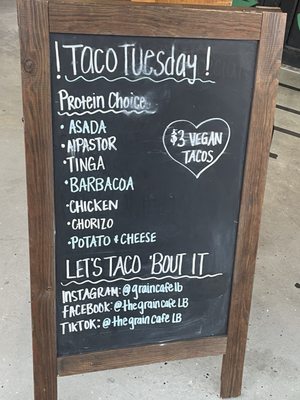 ! TACO TUESDAY !
PROTEIN CHOICE
• ASADA
• AlPASTOR
• TINGA
• BARBACOA
• CHICKEN
• CHORIZO
• POTATO & CHEESE
$3 VEGAN
TACOS
LET'S TACO 'BOUT IT
INSTAGRAM: @graincafelb
FACEBOOK: @thegraincafe LB
TIKTOK: @thegrainCafe LB